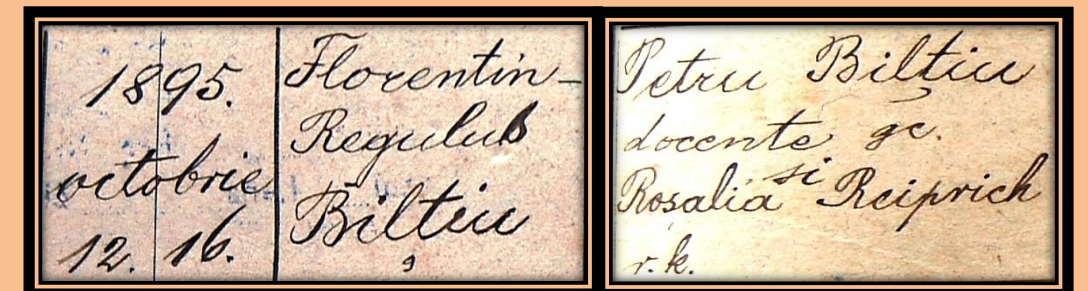 1895.
octobrie
12. 16.
Florentin-
Regulus
Bilțiu
Petru Bilțiu
docente gc.
si
Rosalia Reiprich
r. k.